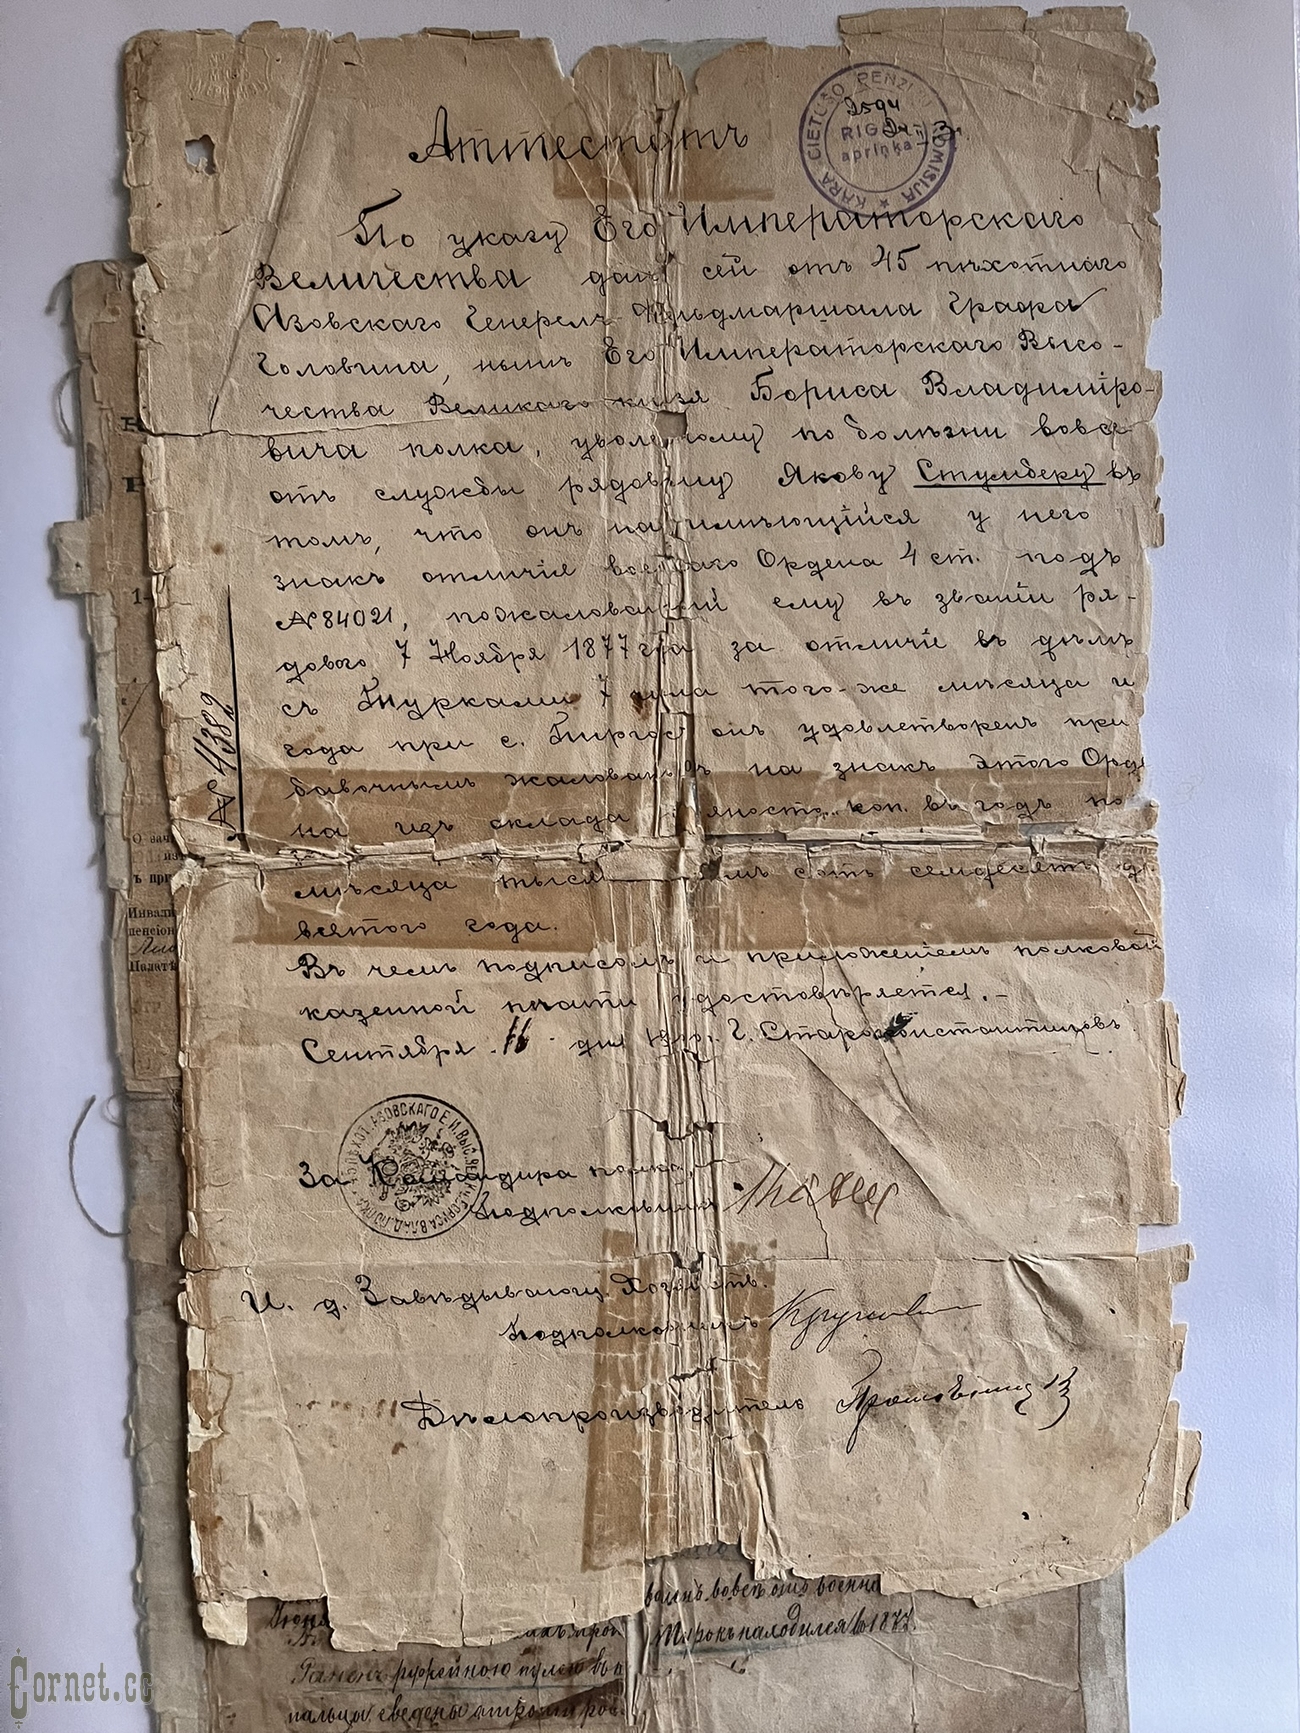 Аттестатъ
KARĀ CIETUŠO PENZIJU KOMISIJA
RIGAS
apriņķa
По указу Его Императорскаго
Величества данъ сей отъ 45 пѣхотнаго
Азовскаго Генералъ-Фельдмаршала Графа
Головина, нынѣ Его Императорскаго Высо-
чества Великаго князя Бориса Владиміро-
вича полка, уволенному по болѣзни вовсе
отъ службы рядовому Якову Стумберу въ
томъ, что онъ на имѣющійся у него
знакъ отличія военнаго Ордена 4 ст. подъ
№ 84021, пожалованный ему въ званіи ря-
дового 7 Ноября 1877 г за отличіе въ дѣлѣ
съ Турками 7 числа того-же мѣсяца и
года при с. Пиргосъ онъ удовлетворенъ при
бавочнымъ жалованьемъ на знакъ этого Орде
на изъ склада коп. въ годъ по
мѣсяца тысяча сотъ семдесятъ де
вятого года.
Въ чемъ подписомъ и приложеніемъ полковой
казенной печати удостовѣряется.-
Сентября 11 дня Г. Староконстантиновъ.
№ 4382
45 ПѢХОТ. АЗОВСКАГО Е. И. ВЫС. В. КН. БОРИСА ВЛАД. ПОЛКА
За Командира полка,
Подполковникъ
И. д. Завѣдывающ. Хозяйств.
Подполковникъ
Дѣлопроизводитель
О зач
изъ
ъ при
Инвали
пенсіон
Палатѣ
вовсе отъ военно
находился въ 1877
Раненъ ружейною пулею въ
пальцы сведены
Cornet.cc